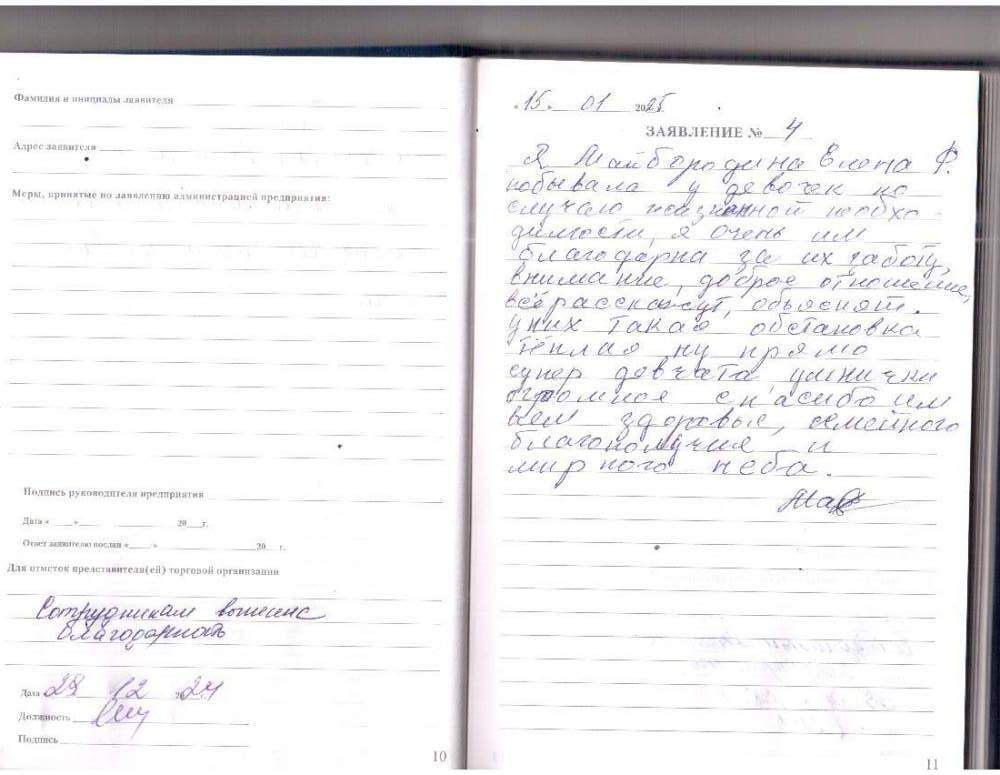 Фамилия и инициалы заявителя
Адрес заявителя
Меры, принятые по заявлению администрацией предприятия:
Подпись руководителя предприятия
Дата « » 20 г.
Ответ заявителю послан « » 20 г.
Для отметок представителя(ей) торговой организации
Сотрудникам вынесена
благодарность
Дата 29 12 2024
Должность
Подпись
10
«15» 01 2025
ЗАЯВЛЕНИЕ № 4
Я Майбородина Елена Р.
побывала у девочек по
случаю жизненной необхо-
димости, я очень им
благодарна за их работу,
внимание, доброе отношение,
всё расскажут, обьяснят.
у них такая обстановка
тёплая ну прямо
супер девчата умнички
огромное спасибо им
всем здоровья, семейного
благополучия и
мирного неба.
11